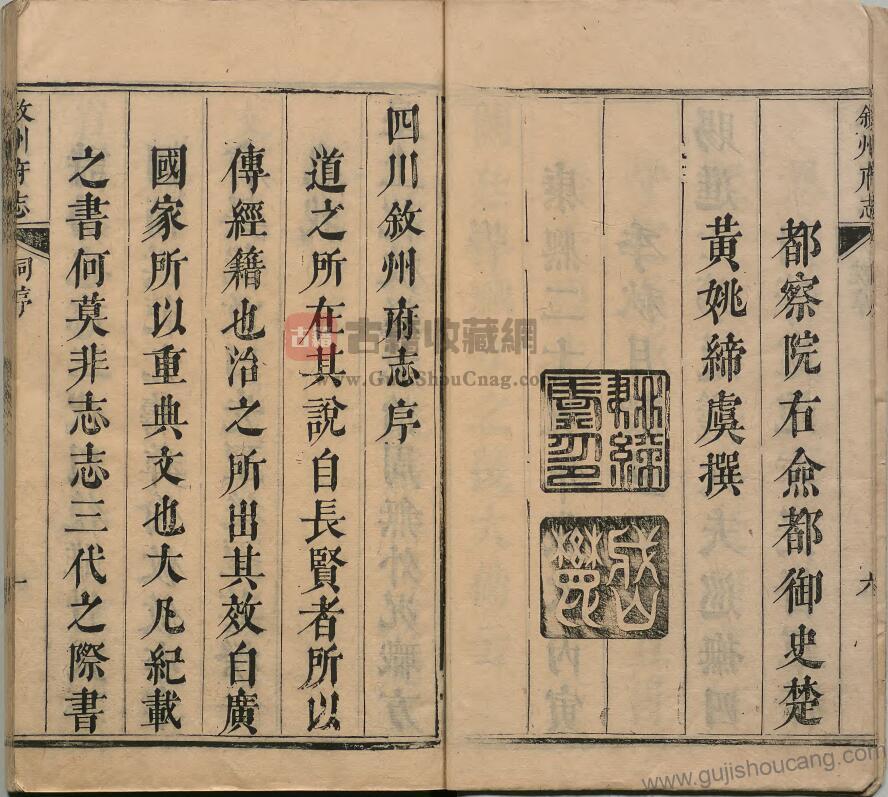 敘州府志
都察院右僉都御史楚
黃姚締虞撰
六
姚締虞印
四川敘州府志序
道之所在其說自長賢者所以
傳經籍也治之所出其效自廣
國家所以重典文也大凡紀載
之書何莫非志志三代之際書
敘州府志
同序
一
古籍
古籍收藏網
www.GuJiShouCnag.com
www.gujishoucang.com